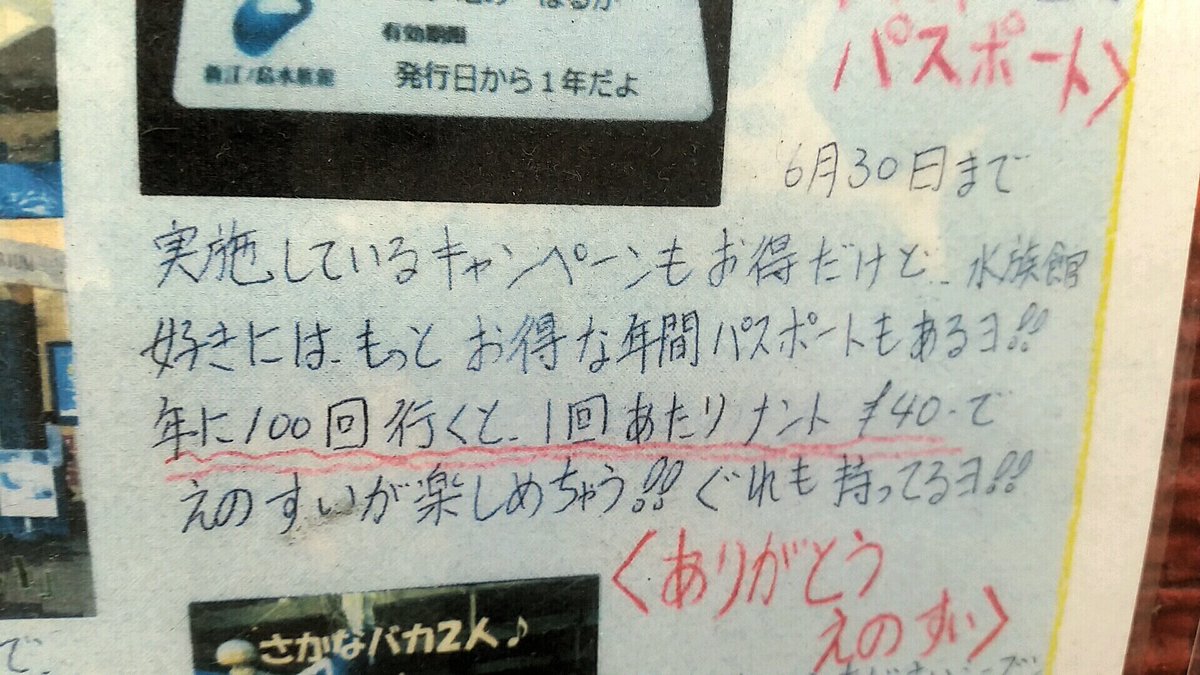 有効期限
新江ノ島水族館
発行日から1年だよ
パスポート〉
6月30日まで
実施しているキャンペーンもお得だけど、水族館
好きには、もっとお得な年間パスポートもあるヨ!!
年に100回行くと、1回あたりナント¥40-で
えのすいが楽しめちゃう!!ぐれも持ってるヨ!!
〈ありがとう
えのすい〉
さかなバカ2人♪
で、